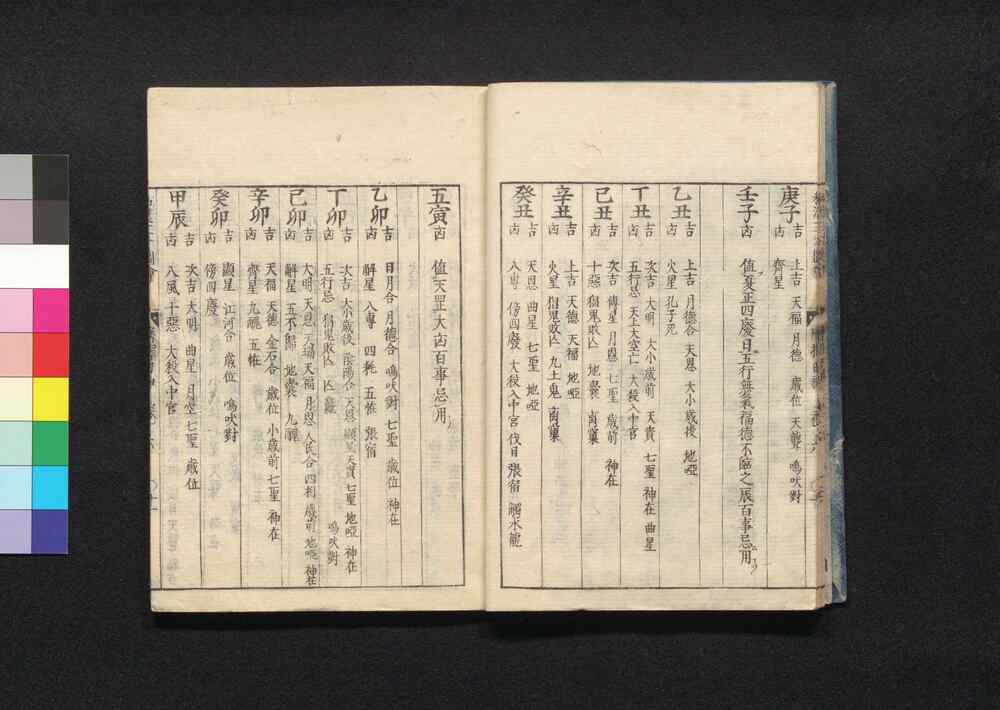 庚子 吉 上吉 天福 月德 歳位 天聾 鳴吠對
凶 齊星
壬子 凶 值夏正四廢日五行無氣福德不臨之辰百事忌用
乙丑 吉 上吉 月德合 天恩 大小歳後 地啞
凶 火星 孔子死
丁丑 吉 次吉 大明 大小歳前 天貴 七聖 神在 曲星
凶 五行忌 天上大空亡 大殺入中宮
己丑 吉 次吉 傳星 月恩 七聖 歳前 神在
凶 十惡 猖鬼敗亾 地囊
辛丑 吉 上吉 天德 天福 地啞
凶 火星 猖鬼敗亾 九土鬼
癸丑 吉 天恩 曲星 七聖 地啞
凶 八專 傍四廢 大殺入中宮 伐日 張宿
五寅 凶 值天罡大凶百事忌用
乙卯 吉 日月合 月德合 鳴吠對 七聖 歳位 神在
凶 觧星 八專 四耗 五帝 張宿
丁卯 吉 次吉 大小歳後 陰陽合 天恩 天貴 七聖 地啞 神在 鳴吠對
凶 五行忌 猖鬼敗亾
己卯 吉 大明 天恩 天福 月恩 人民合 四相 歳前 地啞 神在
凶 觧星 五不歸 地囊 九醜
辛卯 吉 天福 天德 金石合 歳位 小歳前 七聖 神在
凶 齊星 九醜 五帝
癸卯 吉 顯星 江河合 歳位 鳴吠對
凶 傍四廢
甲辰 吉 次吉 大明 曲星 月空 七聖 歳位
凶 八風 十惡 大殺入中宮